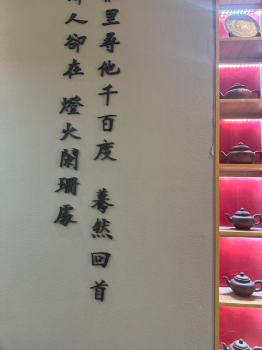 里尋他千百度 驀然回首
人卻在 燈火闌珊處